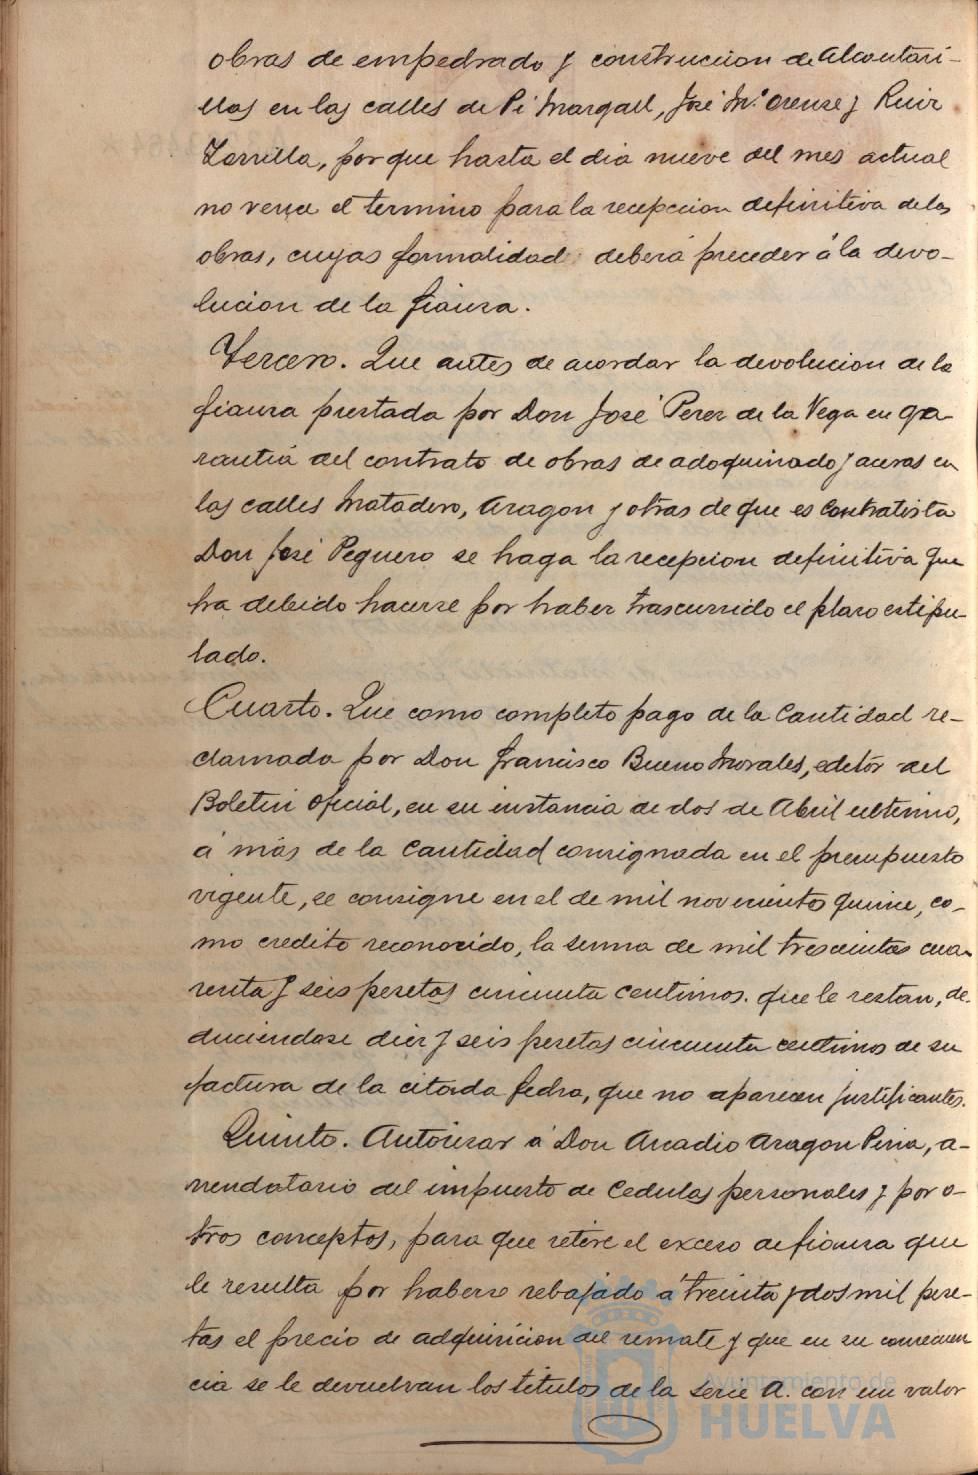 obras de empedrado y construccion de Alcantari-
llas en las calles de Pi Margall, José M.ª Orense y Ruiz
Zorrilla, por que hasta el dia nueve del mes actual
no vence el termino para la recepccion definitiva de las
obras, cuyas formalidad deberá preceder á la devo-
lucion de la fianza.
Tercero. Que antes de acordar la devolucion de la
fianza prestada por Don José Perez de la Vega en ga-
rantia del contrato de obras de adoquinado y aceras en
las calles Matadero, Aragon y otras de que es contratista
Don José Peguero se haga la recepcion definitiva que
ha debido hacerse por haber trascurrido el plazo estipu-
lado.
Cuarto. Que como completo pago de la Cantidad re-
clamada por Don Francisco Bueno Morales, editor del
Boletin Oficial, en su instancia de dos de Abril ultimo,
á más de la Cantidad consignada en el presupuesto
vigente, se consigne en el de mil novecientos quince, co-
mo credito reconocido, la suma de mil trescientas cua-
renta y seis pesetas cincuenta centimos. que le restan, de-
duciendose diez y seis pesetas cincuenta centimos de su
factura de la citada fecha, que no aparecen justificantes.
Quinto. Autorizar á Don Arcadio Aragon Pina, a-
rrendatario del impuesto de Cedulas personales y por o-
tros conceptos, para que retire el exceso de fianza que
le resulta por haberse rebajado á treinta y dos mil pese-
tas el precio de adquisicion del remate y que en su consecuen
cia se le devuelvan los titulos de la serie A. con un valor
Ayuntamiento de
HUELVA